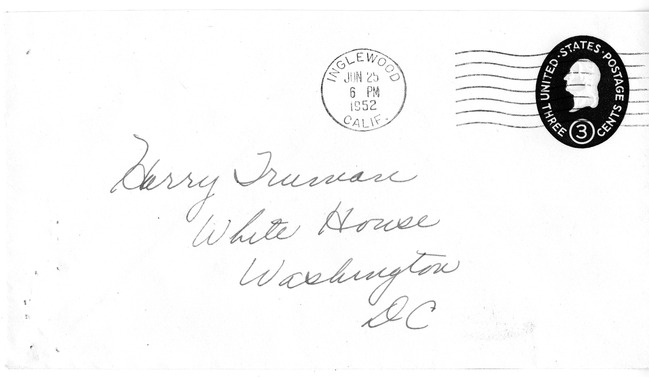 INGLEWOOD
JUN 25
6 PM
1952
CALIF.
UNITED·STATES·POSTAGE
THREE 3 CENTS
Harry Truman
White House
Washington
DC